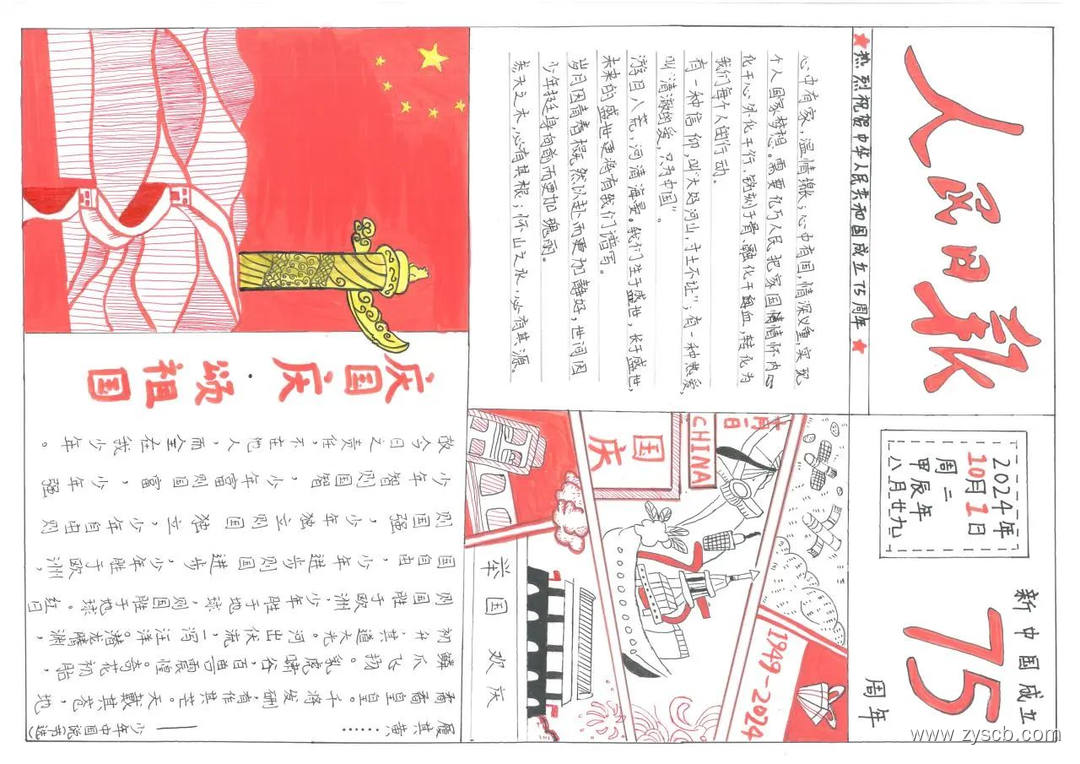 人民日报
热烈祝贺中华人民共和国成立75周年
2024年
10月1日
周二
甲辰年
八月廿九
新中国成立
75
周年
心中有家,温情缴;心中有国,情深义重,实现
个人国家梦想。需要亿万人民把家国情怀内
化于心外化于行、镌刻于骨、融化于血,转化为
我们每个人的行动。
有一种信仰,叫"大好河山,寸土不让";有一种热爱,
叫"清澈的爱,只为中国"。
八荒,河清海晏。我们生于盛世,长于盛世,
未来的盛世更将有我们谱写。
岁月因青春慨然以赴而更加静好,世间因
少年挺身向前而更加瑰丽。
参天之木,必有其根;怀山之水,必有其源。
国庆
CHINA
1949-2024
75
举国欢庆
庆国庆·颂祖国
故今日之责任,不在他人,而全在我少年。
少年智则国智,少年富则国富,少年强
则国强,少年独立则国独立,少年自由则
国自由,少年进步则国进步,少年胜于欧洲,
则国胜于欧洲,少年胜于地球,则国胜于地球。红日
初升,其道大光。河出伏流,一泻汪洋。潜龙腾渊,
鳞爪飞扬。乳虎啸谷,百兽震惶。奇花初胎,
矞矞皇皇。干将发硎,有作其芒。天戴其苍,地
履其黄……
——少年中国说(节选)
www.zyscb.com